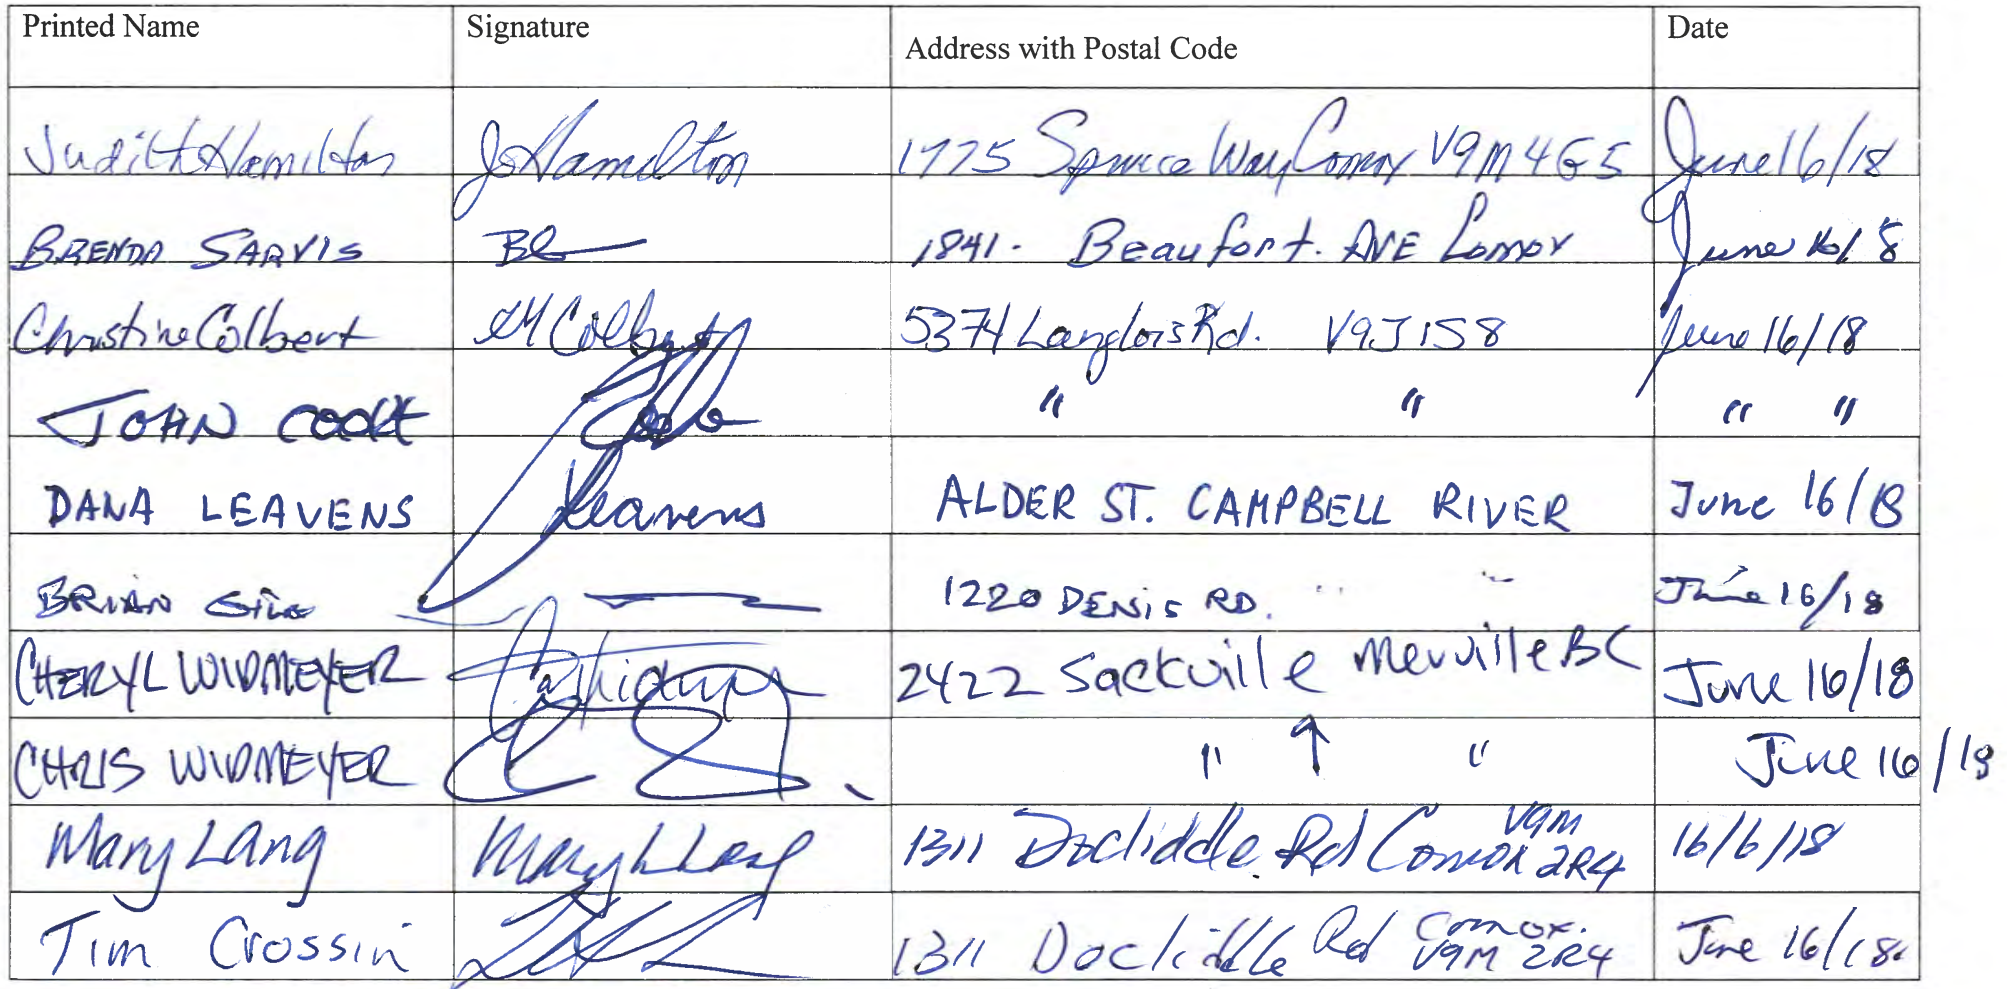 Printed Name Signature Address with Postal Code Date
Judith Hamilton J Hamilton 1775 Spruce Way Comox V9M 4G5 June 16/18
BRENDA SARVIS 1841. Beaufort. AVE Comox June 16/18
Christine Colbert Colbert 5374 Langlois Rd. V9J 1S8 June 16/18
JOHN COOK " " " "
DANA LEAVENS Leavens ALDER ST. CAMPBELL RIVER June 16/18
BRIAN 1220 DENIS RD. " " June 16/18
CHERYL WIDMEYER 2422 Sackville Merville BC June 16/18
CHRIS WIDMEYER " ↑ " June 16/18
Mary Lang Mary L Lang 1311 Docliddle Rd Comox V9M 2R4 16/6/18
Tim Crossin 1311 Docliddle Rd Comox. V9M 2R4 June 16/18.